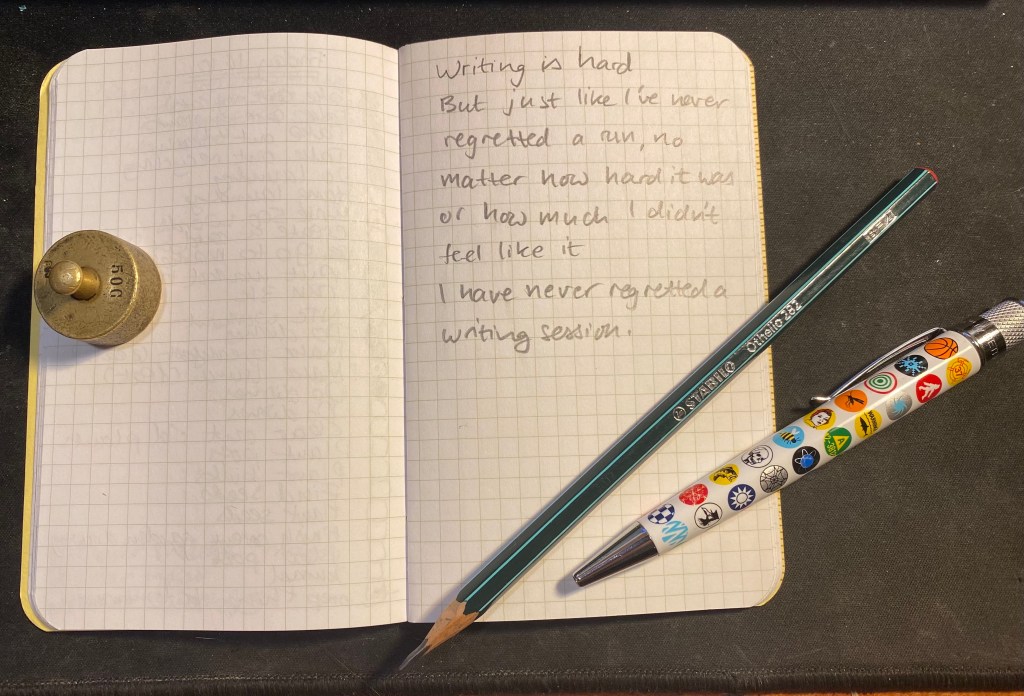 Writing is hard
But just like I've never
regretted a run, no
matter how hard it was
or how much I didn't
feel like it
I have never regretted a
writing session.
500
STABILO Othello 282